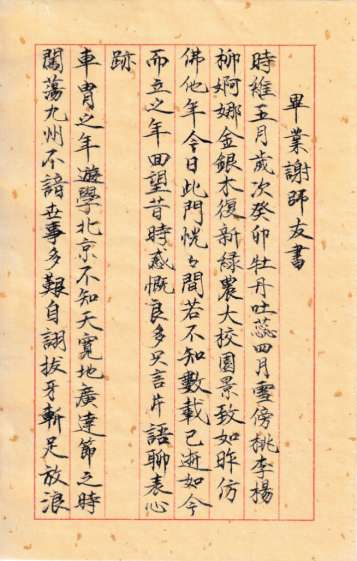 畢業謝師友書
時維五月歲次癸卯牡丹吐蕊四月雪傍桃李楊
柳婀娜金銀木復新綠農大校園景致如昨仿
佛他年今日此門恍〻間若不知數載已逝如今
而立之年回望昔時感慨良多只言片語聊表心
跡
車胄之年遊學北京不知天寬地廣達節之時
闊蕩九州不諳世事多艱自詡拔牙斬足放浪